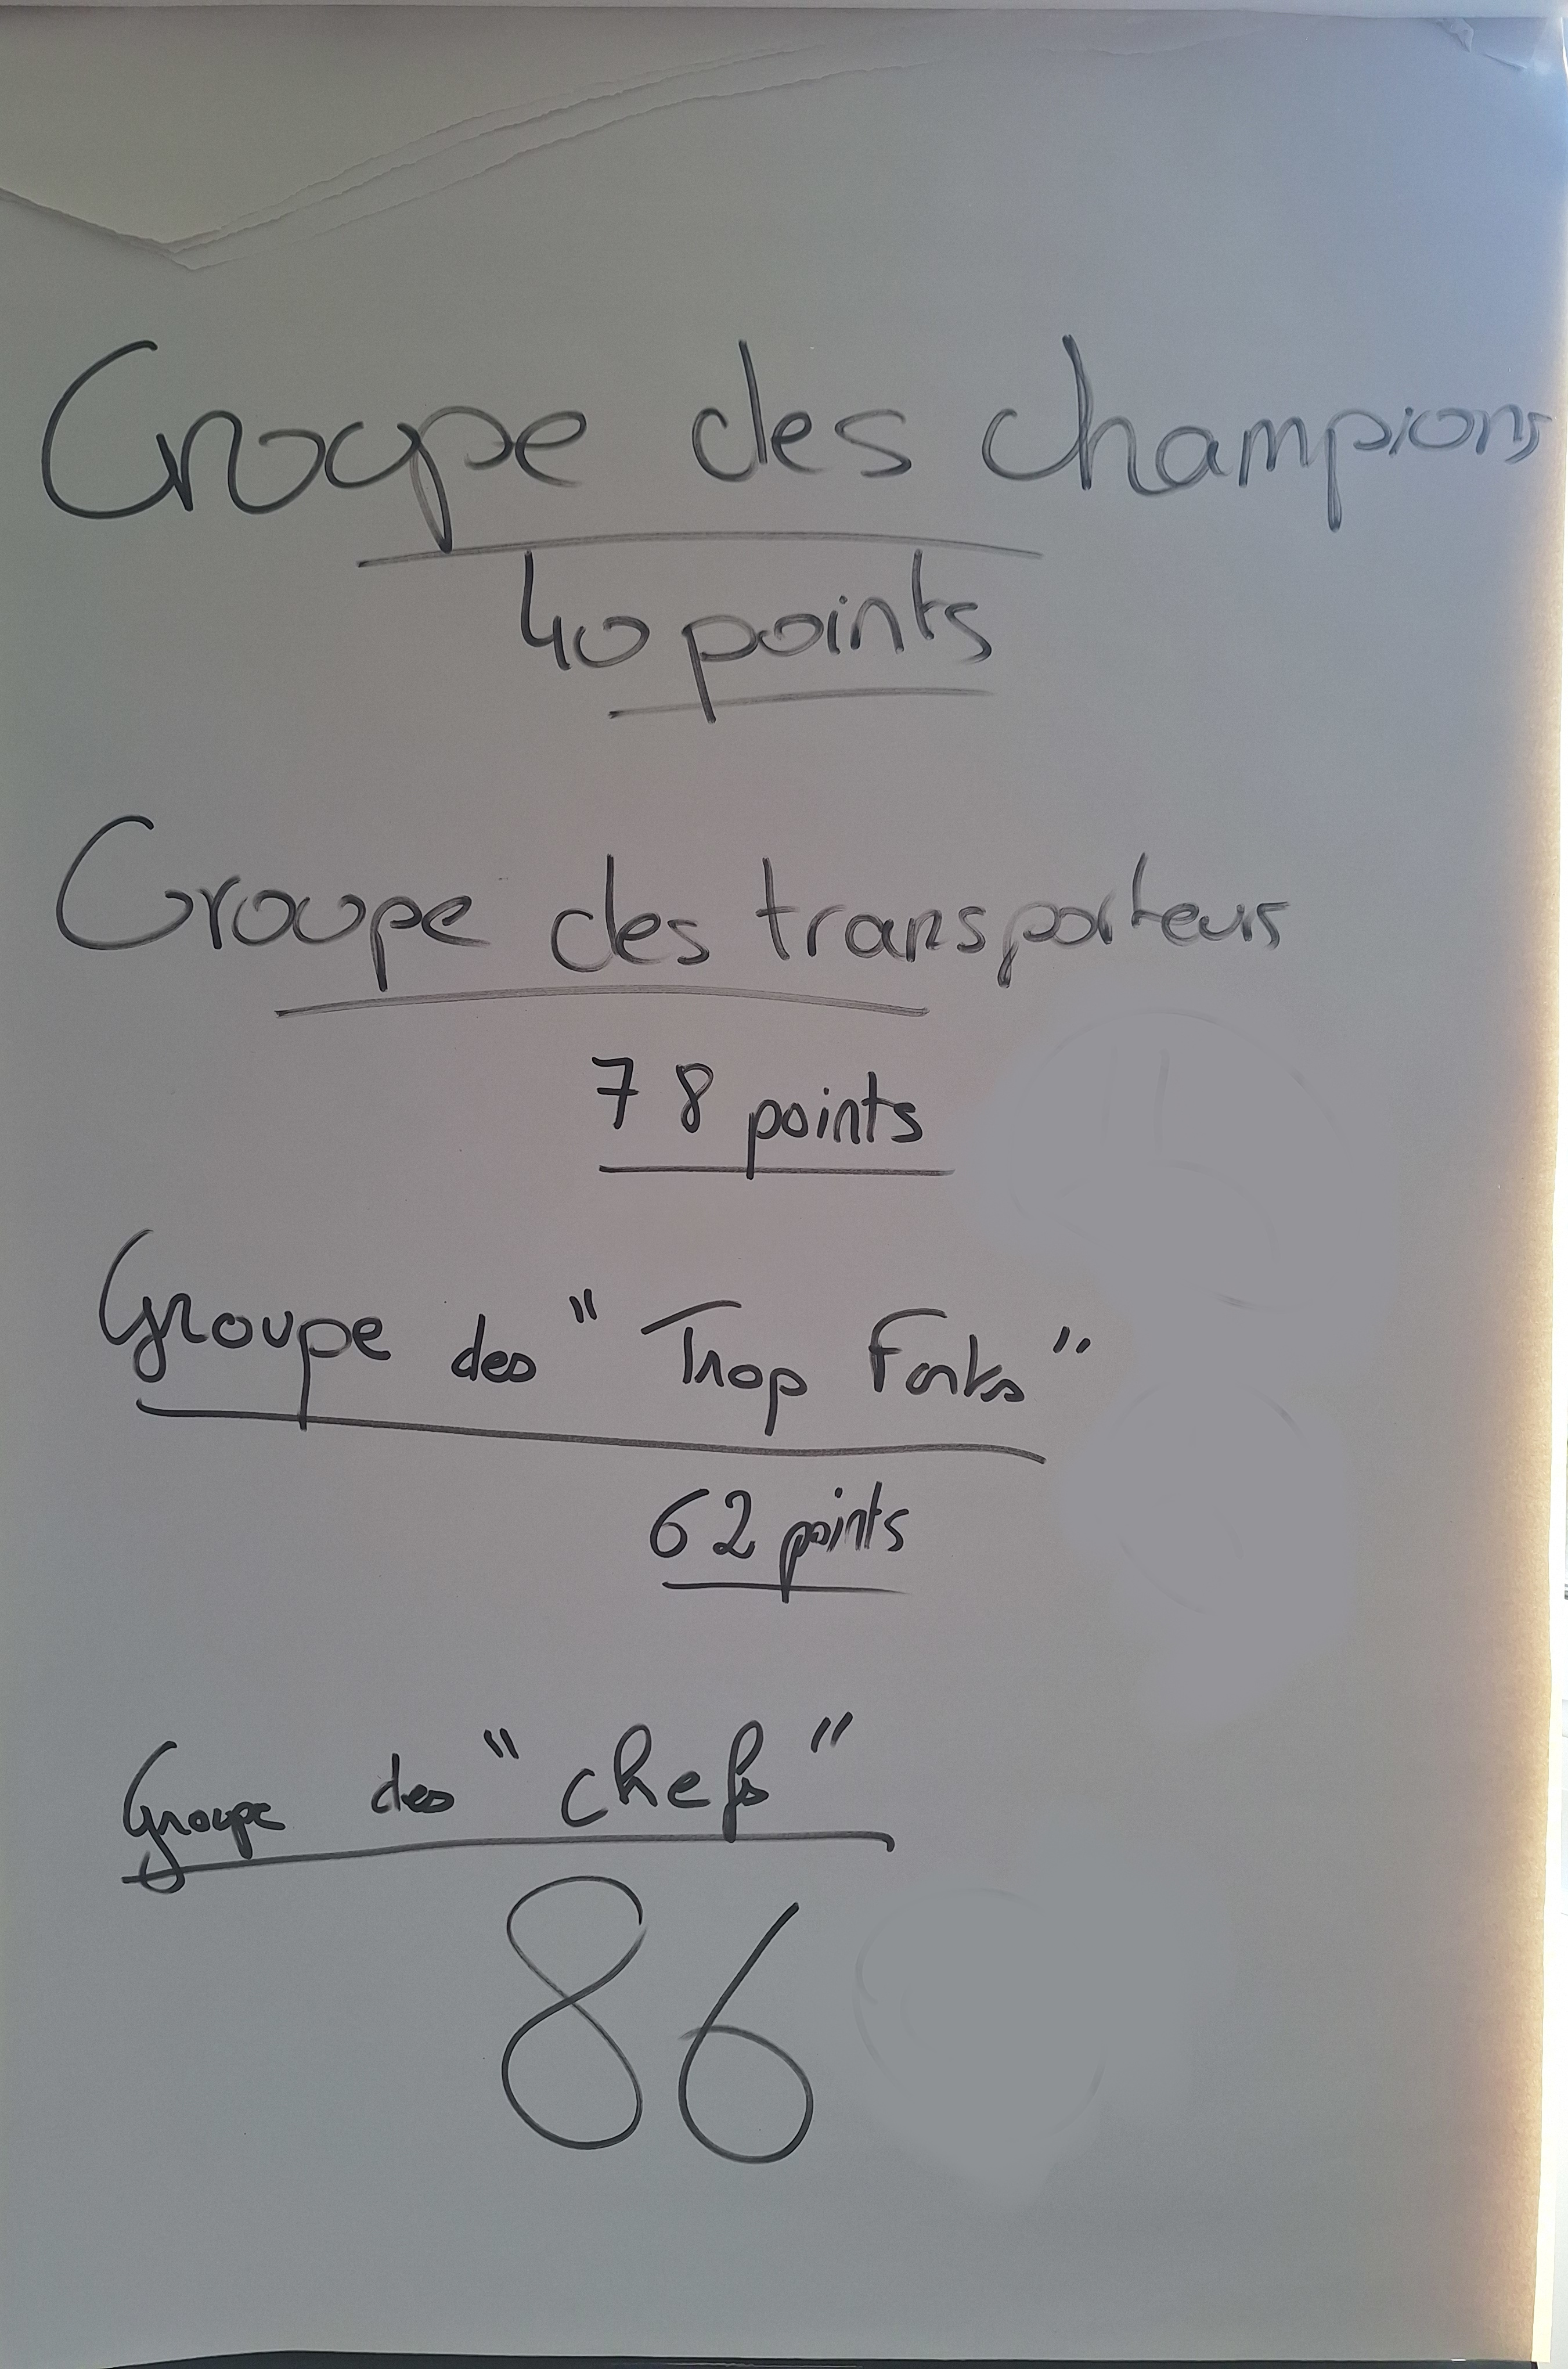 Groupe des champions
40 points
Groupe des transporteurs
78 points
Groupe des "Trop Forts"
62 points
Groupe des "chefs"
86